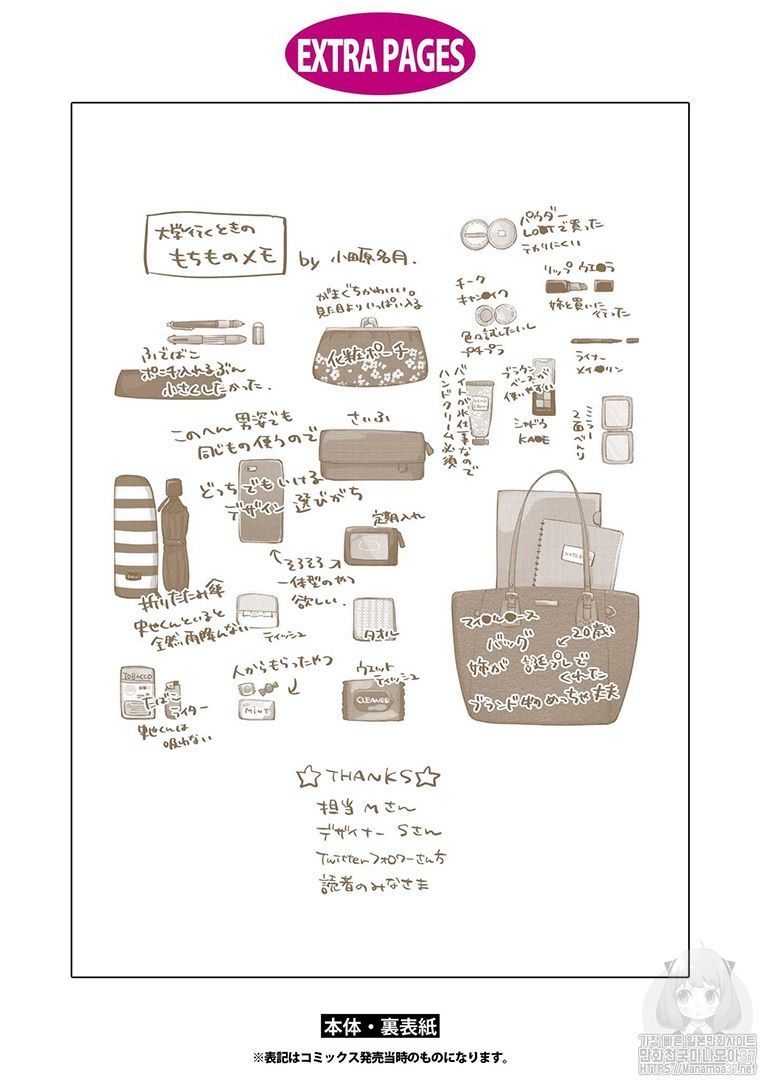 EXTRA PAGES
大学行くときの
もちものメモ
by 小田原名月.
パウダー
LODTで買った
テカリにくい
リップ ウエ●ラ
姉と買いに
行った
チーク
キャン●イク
色々試したいし
プチプラ
ライナー
メイ●リン
ブラウン
ベースが
使いやすい
シャドウ
KADE
ミラー
2面べんり
がまぐちかわいい。
見た目よりいっぱい入る
化粧ポーチ
ふでばこ
ポーチ入れるぶん
小さくしたかった.
バイトが水仕事なので
ハンドクリーム必須
HAND
CREAM
このへん男姿でも
同じもの使うので
どっちでもいける
デザイン選びがち
さいふ
定期入れ
そろそろ
一体型のやつ
欲しい.
折りたたみ傘
史也くんといると
全然雨降んない
ティッシュ
タオル
NOTE
マイ●ル●ース
バッグ
20歳い
姉が 誕プレで
くれた
ブランド物めっちゃ丈夫
人からもらったやつ
MINT
ウエット
ティッシュ
CLEANER
TOBACCO
たばこ
ライター
史也くんは
吸わない
☆THANKS☆
担当Mさん
デザイナー Sさん
Twitterフォロワーさん方
読者のみなさま
本体・裏表紙
※表記はコミックス発売当時のものになります。
가장 빠른 일본만화사이트
만화천국 마나모아37
HTTPS://Manamoa37.net